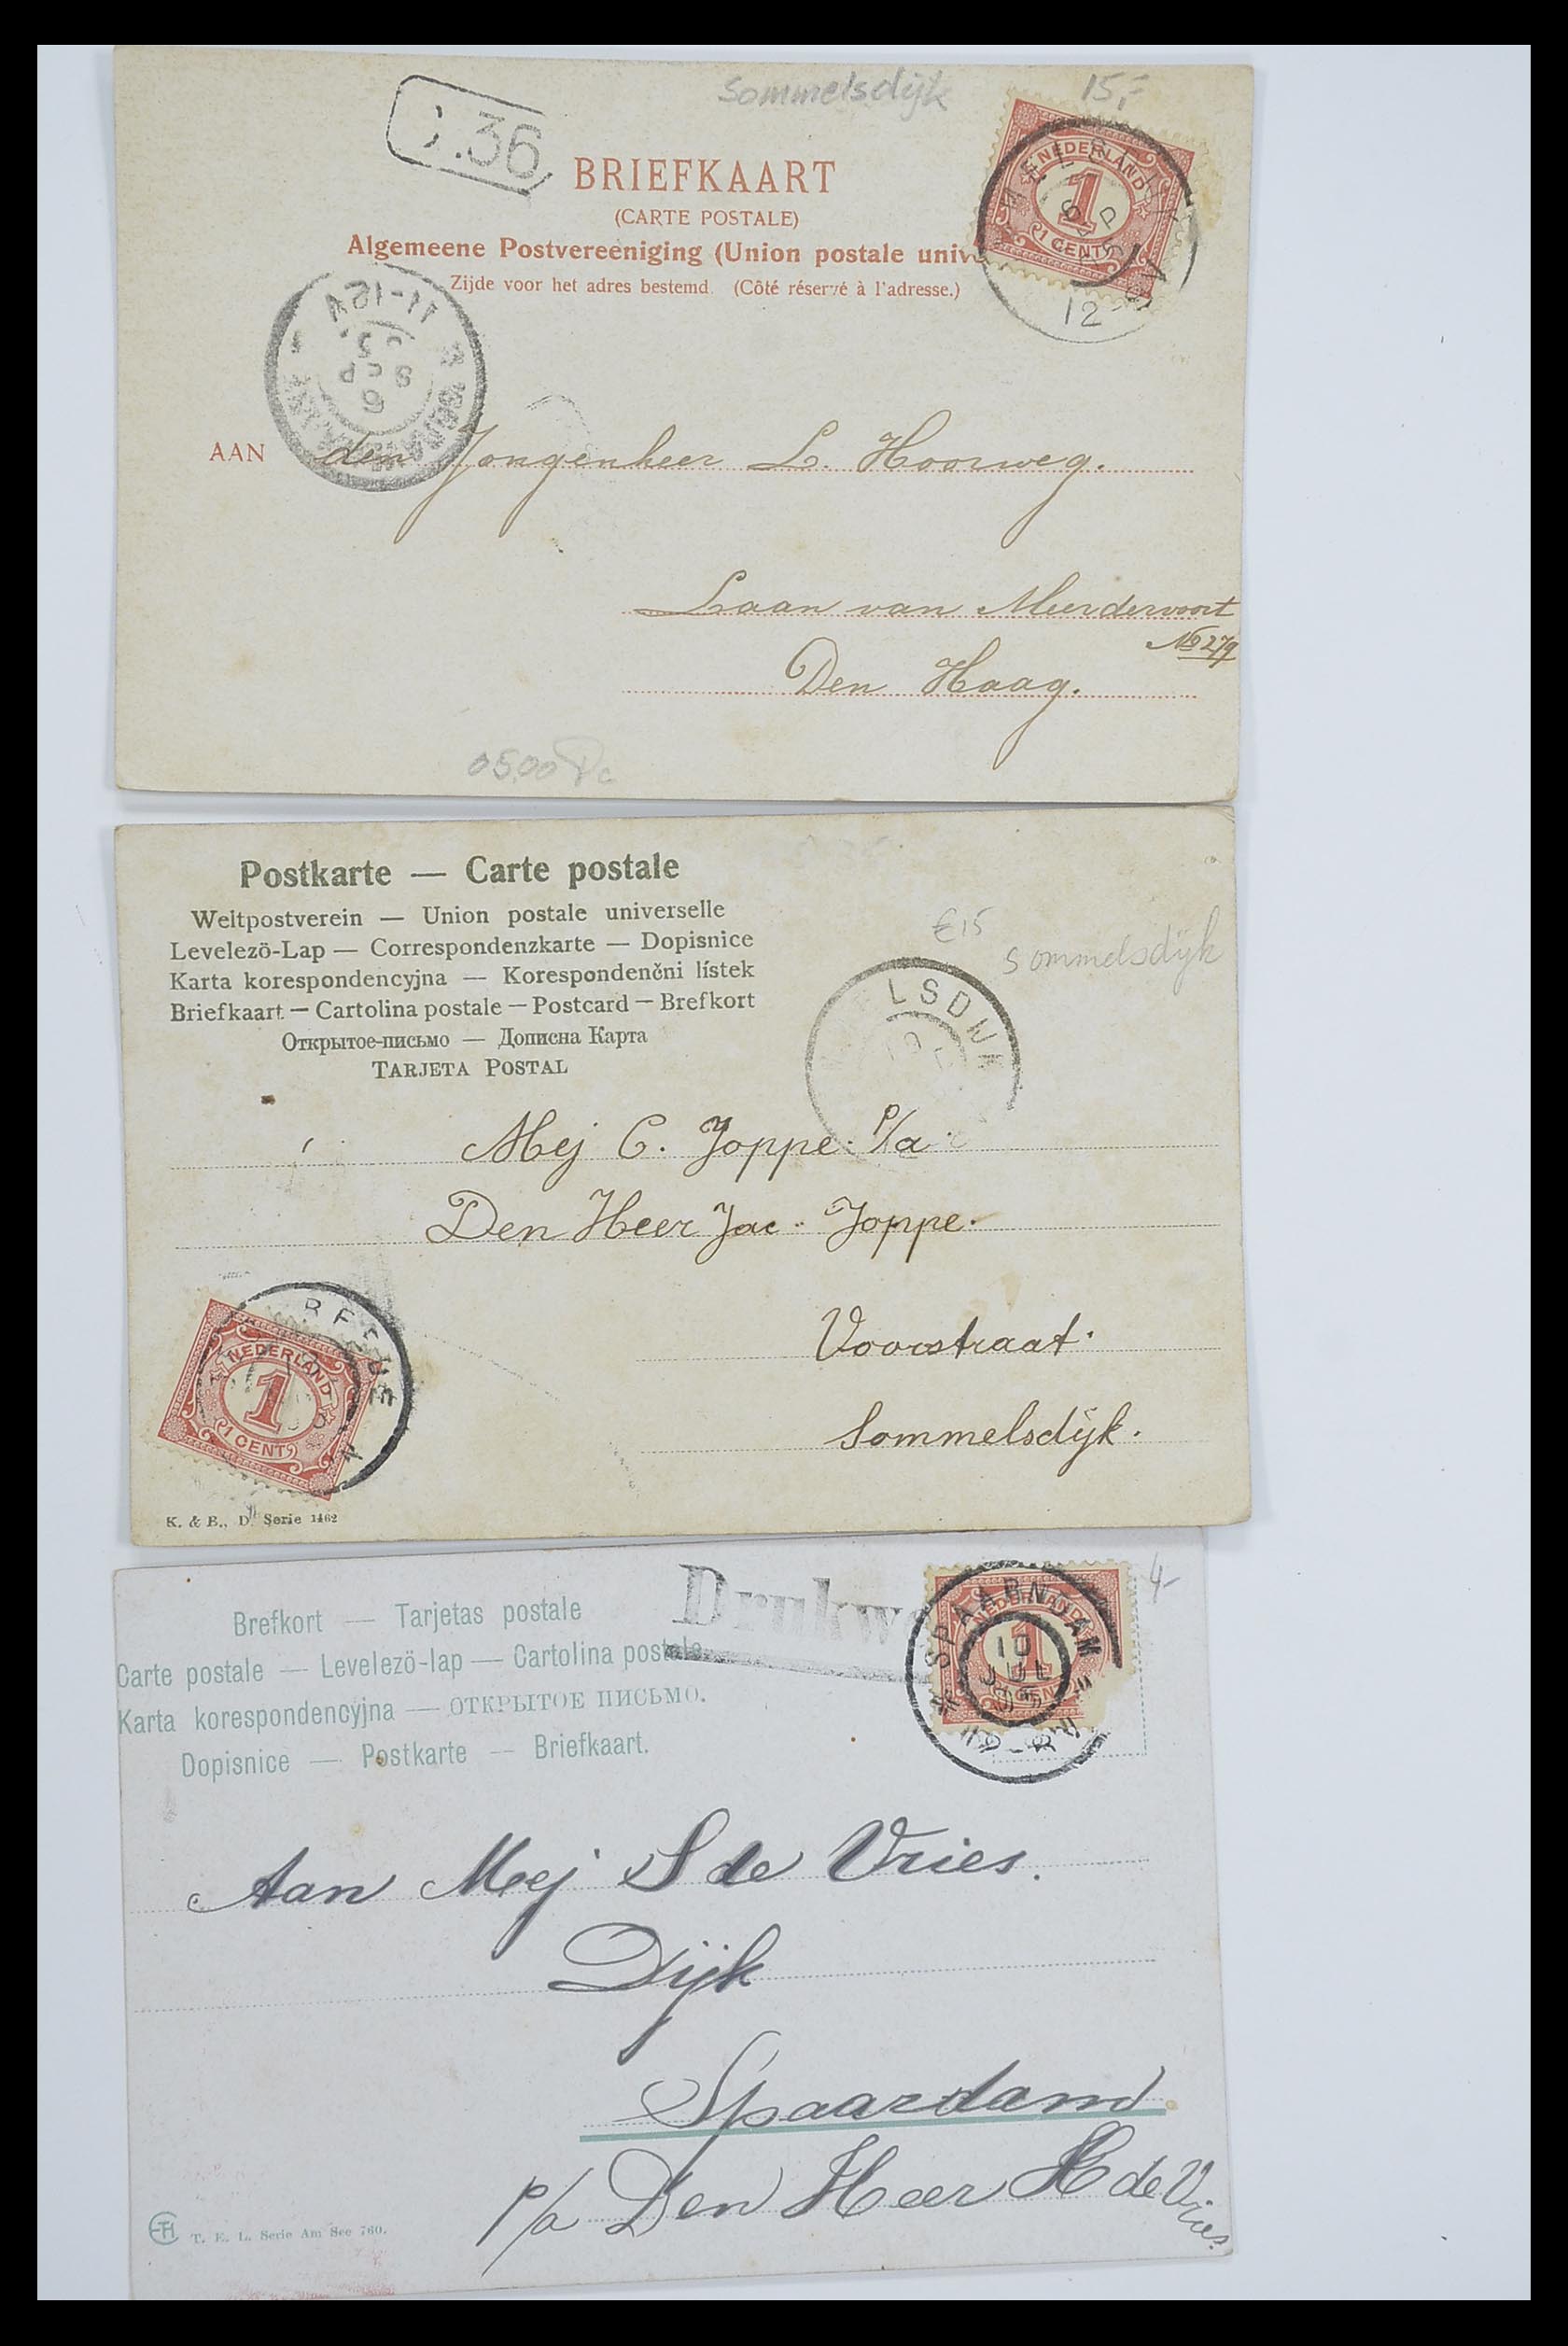 Sommelsdijk 15,-
36
BRIEFKAART
(CARTE POSTALE)
Algemeene Postvereeniging (Union postale unive
Zijde voor het adres bestemd. (Côté réservé à l'adresse.)
NEDERLAND
1
1 CENT
12
11-12V
5
SEP
6
AAN den Jongenheer L. Hoorweg.
Laan van Meerdervoort
No 279
Den Haag.
Postkarte — Carte postale
Weltpostverein — Union postale universelle
Levelezö-Lap — Correspondenzkarte — Dopisnice
Karta korespondencyjna — Korespondenčni lístek
Briefkaart — Cartolina postale — Postcard — Brefkort
Открытое-письмо — Дописна Карта
TARJETA POSTAL
€15
Sommelsdijk
ELSDIJK
Mej C. Joppe. p/a
Den Heer Jac. Joppe.
Voorstraat.
Sommelsdijk.
NEDERLAND
1
1 CENT
K. & B., D. Serie 1462
Drukw
4-
Brefkort — Tarjetas postale
Carte postale — Levelezö-lap — Cartolina postale
Karta korespondencyjna — ОТКРЫТОЕ ПИСЬМО.
Dopisnice — Postkarte — Briefkaart.
NEDERLAND
1
SPAARNDAM
10
JUL
05
Aan Mej S de Vries.
Dijk
Spaardam.
p/a Den Heer K de Vries.
T. E. L. Serie Am See 760.